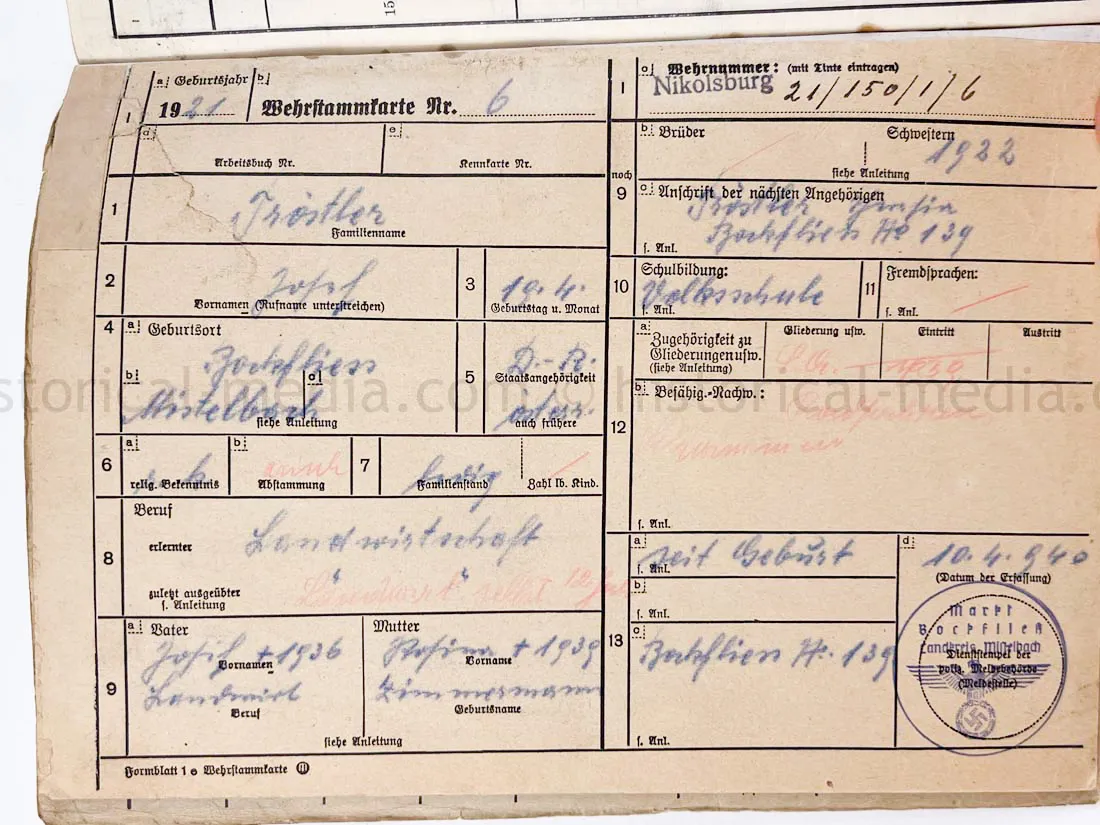 15
1
a) Geburtsjahr
1921
b)
Wehrstammkarte Nr. 6
d)
Arbeitsbuch Nr.
e)
Kennkarte Nr.
1
Tröstler
Familienname
2
Josef
Vornamen (Rufname unterstreichen)
3
19.4.
Geburtstag u. Monat
4
a) Geburtsort
Bockfliess
b)
c)
Mistelbach
siehe Anleitung
5
D.-R.
Staatsangehörigkeit
österr.
auch frühere
6
a)
r. k.
relig. Bekenntnis
b)
arisch
Abstammung
7
ledig
Familienstand
Zahl lb. Kind.
8
Beruf
erlernter
Landwirtschaft
zuletzt ausgeübter
s. Anleitung
"Landwirt" selbst
9
a) Vater
Josef + 1936
Vornamen
Landwirt
Beruf
Mutter
Rosina + 1939
Vorname
Zimmermann
Geburtsname
siehe Anleitung
Formblatt 1 e Wehrstammkarte
1
c) Wehrnummer: (mit Tinte eintragen)
Nikolsburg 21/150/1/6
noch
9
b) Brüder
Schwestern
1922
siehe Anleitung
c) Anschrift der nächsten Angehörigen
Tröstler
Bockfliess No 139
s. Anl.
10
Schulbildung:
Volksschule
s. Anl.
11
Fremdsprachen:
s. Anl.
12
a) Zugehörigkeit zu
Gliederungen usw.
(siehe Anleitung)
Gliederung usw.
S.A.
Eintritt
1939
Austritt
b) Befähig.-Nachw.:
s. Anl.
13
a) seit Geburt
s. Anl.
b)
s. Anl.
c)
Bockfliess No. 139
s. Anl.
d)
10.4.940
(Datum der Erfassung)
Markt
Bockfließ
Landkreis Mistelbach
Dienststempel der
poliz. Meldebehörde
(Meldestelle)
historical-media.com © historical-media.com